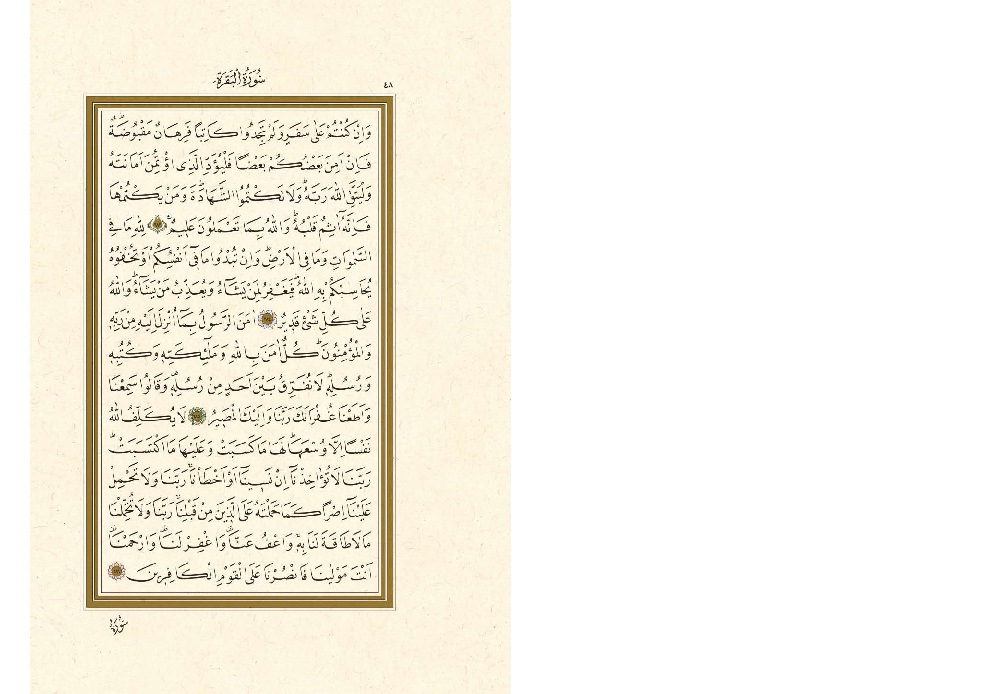 سُورَةُ الْبَقَرَةِ
٤٨
وَاِنْ كُنْتُمْ عَلٰى سَفَرٍ وَلَمْ تَجِدُوا كَاتِبًا فَرِهَانٌ مَقْبُوضَةٌۜ
فَاِنْ اَمِنَ بَعْضُكُمْ بَعْضًا فَلْيُؤَدِّ الَّذِى اؤْتُمِنَ اَمَانَتَهُ
وَلْيَتَّقِ اللّٰهَ رَبَّهُۜ وَلَا تَكْتُمُوا الشَّهَادَةَۜ وَمَنْ يَكْتُمْهَا
فَاِنَّهُٓ اٰثِمٌ قَلْبُهُۜ وَاللّٰهُ بِمَا تَعْمَلُونَ عَلِيمٌ۟ لِلّٰهِ مَا فِى
السَّمٰوَاتِ وَمَا فِى الْاَرْضِۜ وَاِنْ تُبْدُوا مَا فِٓى اَنْفُسِكُمْ اَوْ تُخْفُوهُ
يُحَاسِبْكُمْ بِهِ اللّٰهُۜ فَيَغْفِرُ لِمَنْ يَشَٓاءُ وَيُعَذِّبُ مَنْ يَشَٓاءُۜ وَاللّٰهُ
عَلٰى كُلِّ شَىْءٍ قَدِيرٌ اٰمَنَ الرَّسُولُ بِمَٓا اُنْزِلَ اِلَيْهِ مِنْ رَبِّهِ
وَالْمُؤْمِنُونَۜ كُلٌّ اٰمَنَ بِاللّٰهِ وَمَلٰٓئِكَتِهِ وَكُتُبِهِ
وَرُسُلِهِۜ لَا نُفَرِّقُ بَيْنَ اَحَدٍ مِنْ رُسُلِهِ۠ وَقَالُوا سَمِعْنَا
وَاَطَعْنَا غُفْرَانَكَ رَبَّنَا وَاِلَيْكَ الْمَصِيرُ لَا يُكَلِّفُ اللّٰهُ
نَفْسًا اِلَّا وُسْعَهَاۜ لَهَا مَا كَسَبَتْ وَعَلَيْهَا مَا اكْتَسَبَتْۜ
رَبَّنَا لَا تُؤَاخِذْنَٓا اِنْ نَسِينَٓا اَوْ اَخْطَأْنَاۚ رَبَّنَا وَلَا تَحْمِلْ
عَلَيْنَٓا اِصْرًا كَمَا حَمَلْتَهُ عَلَى الَّذِينَ مِنْ قَبْلِنَاۚ رَبَّنَا وَلَا تُحَمِّلْنَا
مَا لَا طَاقَةَ لَنَا بِهِۚ وَاعْفُ عَنَّا۠ وَاغْفِرْ لَنَا۠ وَارْحَمْنَا۠
اَنْتَ مَوْلٰينَا فَانْصُرْنَا عَلَى الْقَوْمِ الْكَافِرِينَ
سُورَةُ